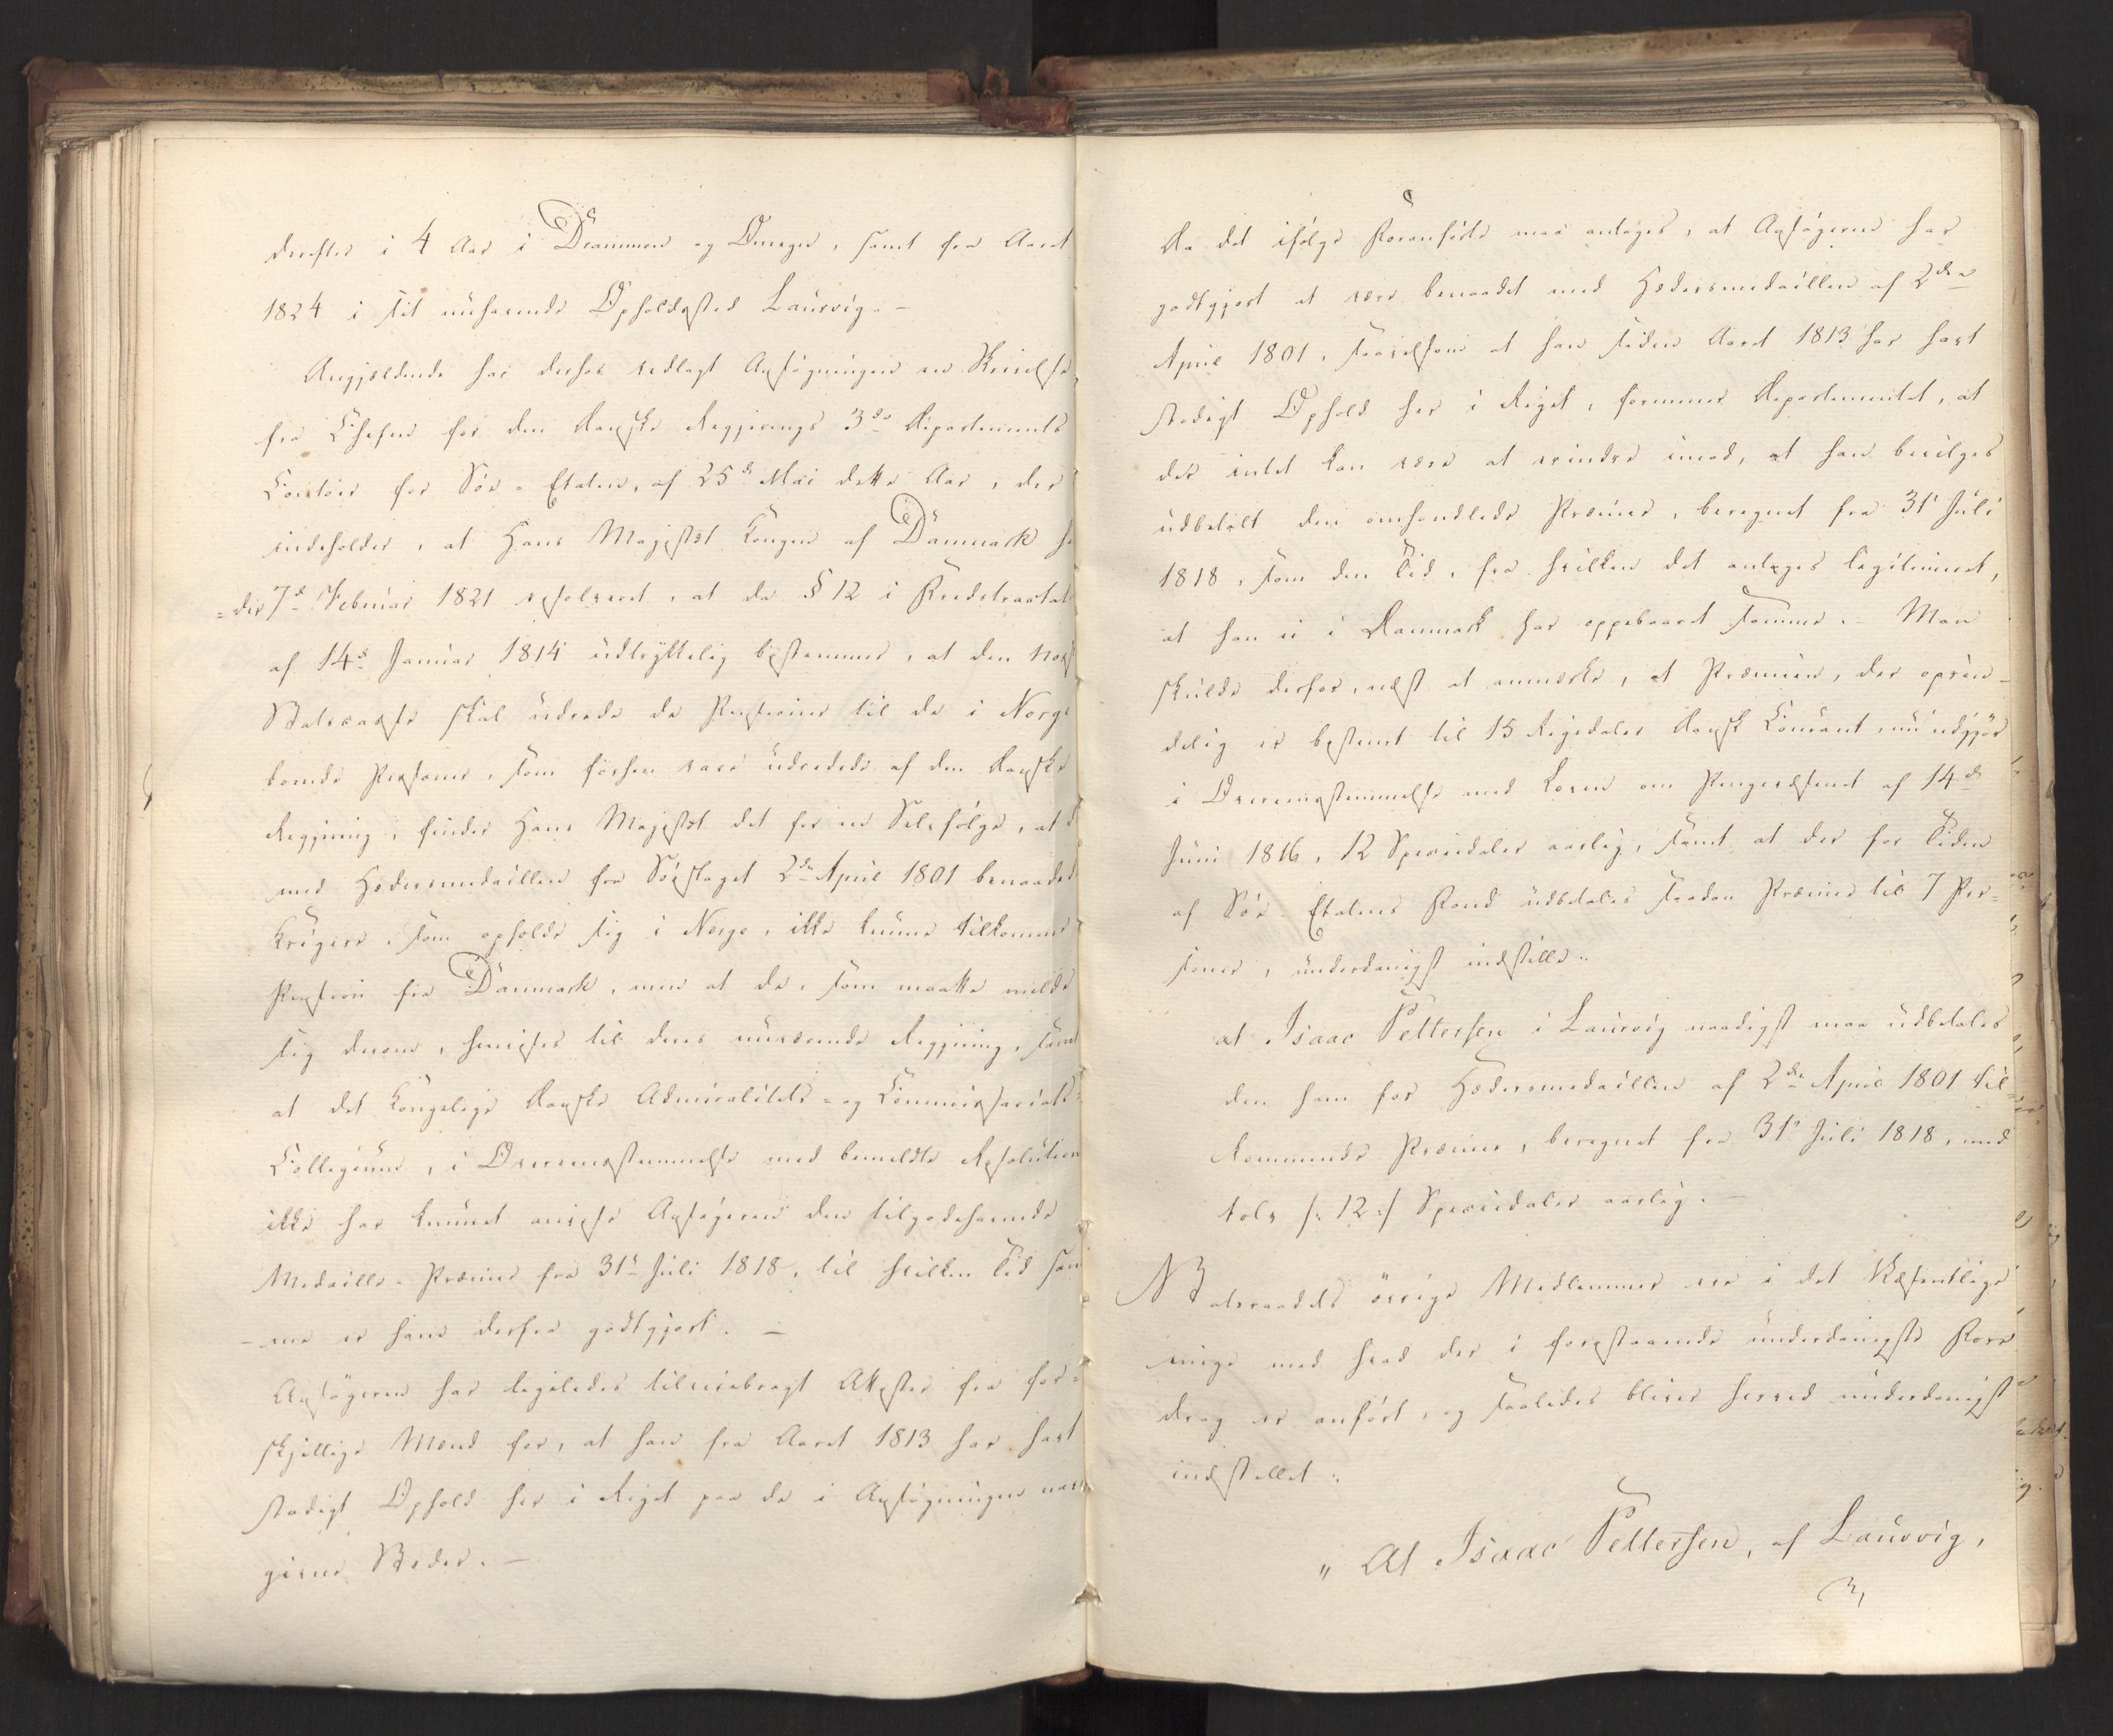 derefter i 4 Aar i Drammen og Omegn, samt fra Aaret
1824 i sit nuhavende Opholdssted Laurvig. –
Angjældende har derhos vedlagt Ansøgningen en Skrivelse
fra Chefen for den danske Regjerings 3de Departements
Contoir for Søe-Etaten, af 25de Mai dette Aar, der
indeholder, at Hans Majestæt Kongen af Danmark
7de Februar 1821 resolveret, at da § 12 i Fredstractaten
af 14de Januar 1814 udtrykkelig bestemmer, at den norske
Statscasse skal udrede de Pensioner til de i Norge
boende Personer, som forhen vare udredede af den danske
Regjering, finder Hans Majestæt det for en Selvfølge, at
med Hædersmedaillen fra Søeslaget 2den April 1801 benaadede
Krigere, som opholde sig i Norge, ikke kunne tilkomme
Pension fra Danmark, men at de, som maatte melde
sig derom, henvises til deres nuværende Regjering, samt
at det kongelige danske Admiralitets- og Commissariats-
Collegium, i Overeensstemmelse med bemeldte Resolution
ikke har kunnet anvise Ansøgeren den tilgodehavende
Medaille-Præmie fra 31te Juli 1818, til hvilken Tid sam
-me er ham derfra godtgjort. –
Ansøgeren har ligeledes tilveiebragt Attester fra for-
skjellige Mænd for, at han fra Aaret 1813 har havt
stadigt Ophold her i Riget paa de i Ansøgningen
givne Steder. –
Da det ifølge Foranførte maa antages, at Ansøgeren har
godtgjort at være benaadet med Hædersmedaillen af 2den
April 1801, saavelsom at han siden Aaret 1813 har havt
stadigt Ophold her i Riget, formener Departementet, at
der intet kan være at erindre imod, at han bevilges
udbetalt den omhandlede Præmie, beregnet fra 31 Juli
1818, som den Tid, fra hvilken det antages legitimeret,
at han ei i Danmark har oppebaaret samme. – Man
skulde derfor, næst at anmærke, at Præmien, der oprin-
delig er bestemt til 15 Rigsdaler dansk Courant, nu udgjør
i Overeensstemmelse med Loven om Pengevæsenet af 14de
Juni 1816, 12 Speciedaler aarlig, samt at der for Tiden
af Søe-Etatens Fond udbetales saadan Præmie til 7 Per-
soner, underdanigst indstille:
at Isaac Pettersen i Laurvig naadigst maa udbetales
den ham for Hædersmedaillen af 2den April 1801 til-
kommende Præmie, beregnet fra 31te Juli 1818, med
tolv /: 12 :/ Speciedaler aarlig. –
Statsraadets øvrige Medlemmer ere i det Væsentlige
enige med hvad der i forestaaende underdanigste Fore
drag er anført, og saaledes bliver herved underdanigst
indstillet:
„At Isaac Pettersen, af Laurvig,